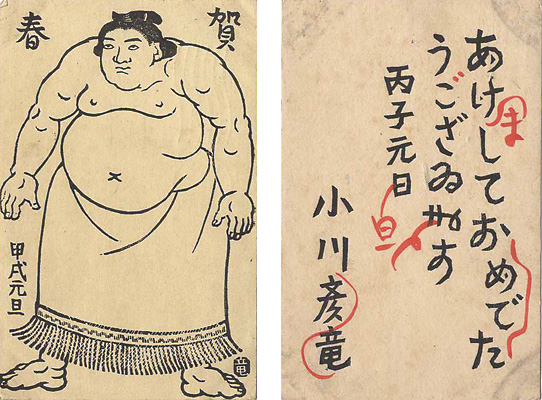 賀春
甲戌元旦
竜
あけしておめでた
ま
うござゐます
丙子元日
旦
小川彦竜